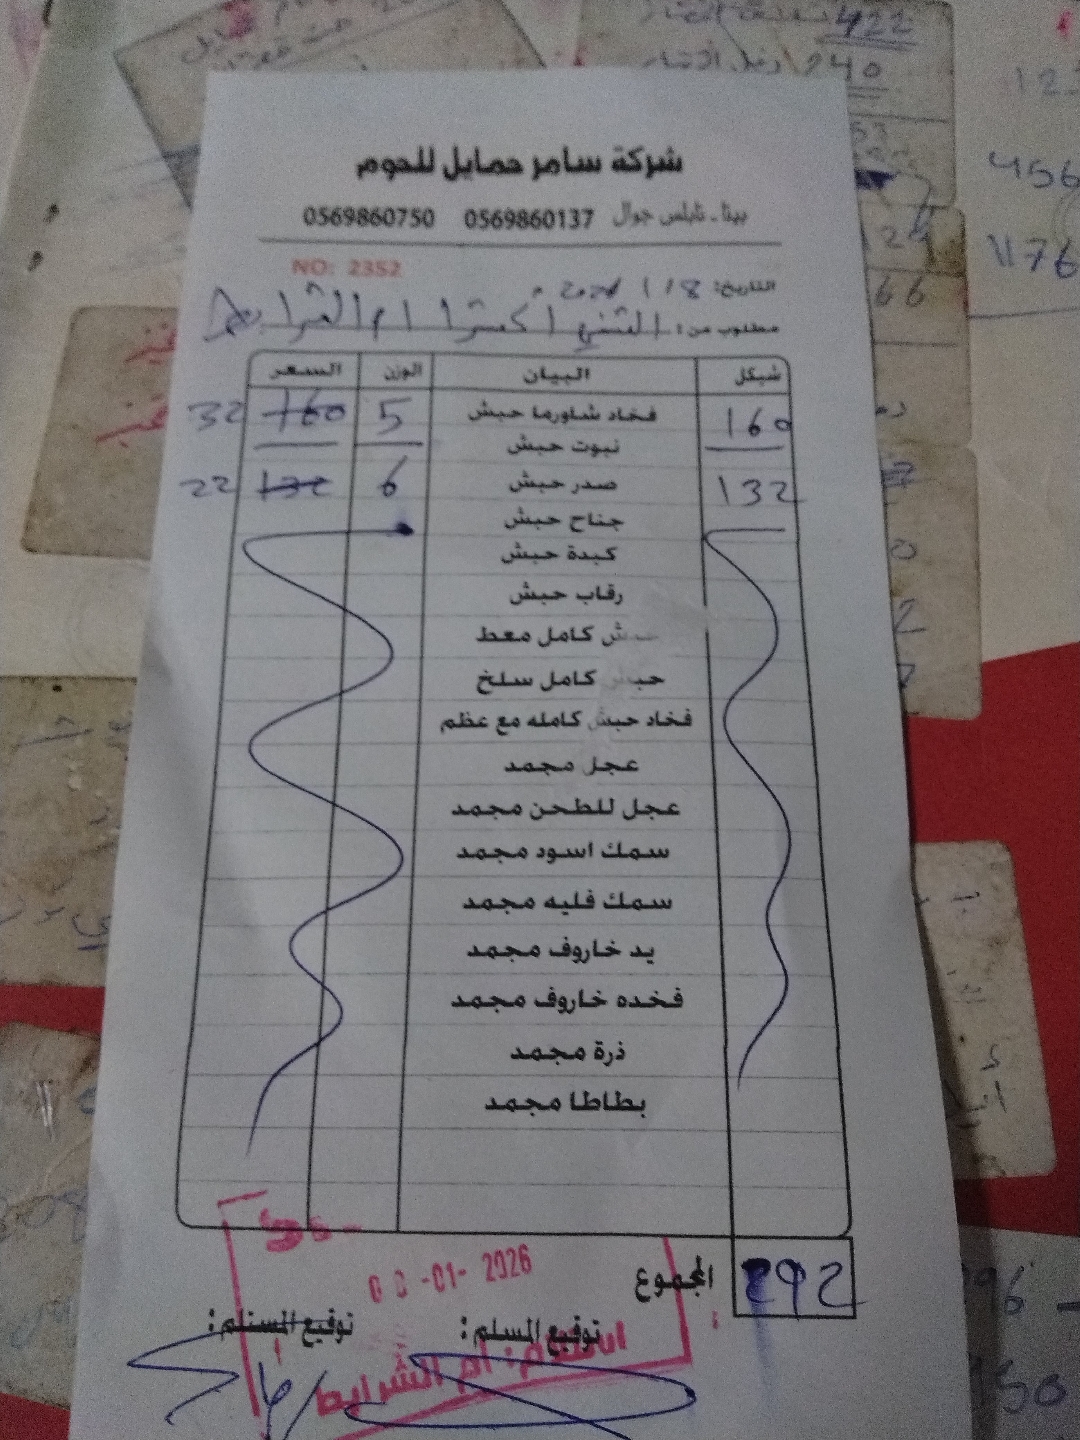 شركة سامر حمايل للحوم
بيتا - نابلس جوال 0569860137 0569860750
NO: 2352
التاريخ: 8 / 1 / 2026
مطلوب من: ام الشرايط
شيكل البيان الوزن السعر
160 فخاد شاورما حبش 5 160 32
نبوت حبش
132 صدر حبش 6 132 22
جناح حبش
كبدة حبش
رقاب حبش
حبش كامل معط
حبش كامل سلخ
فخاد حبش كامله مع عظم
عجل مجمد
عجل للطحن مجمد
سمك اسود مجمد
سمك فليه مجمد
يد خاروف مجمد
فخده خاروف مجمد
ذرة مجمد
بطاطا مجمد
المجموع 292
-01- 2026
توقيع المسلم: توقيع المستلم:
ام الشرايط
422
240
456
1176
66